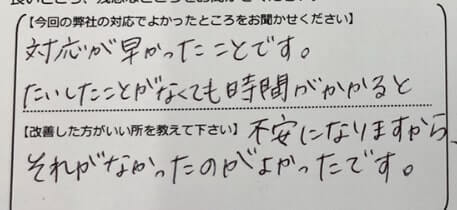 【今回の弊社の対応でよかったところをお聞かせください】
対応が早かったことです。
たいしたことがなくても時間がかかると
【改善した方がいい所を教えて下さい】不安になりますから、
それがなかったのがよかったです。